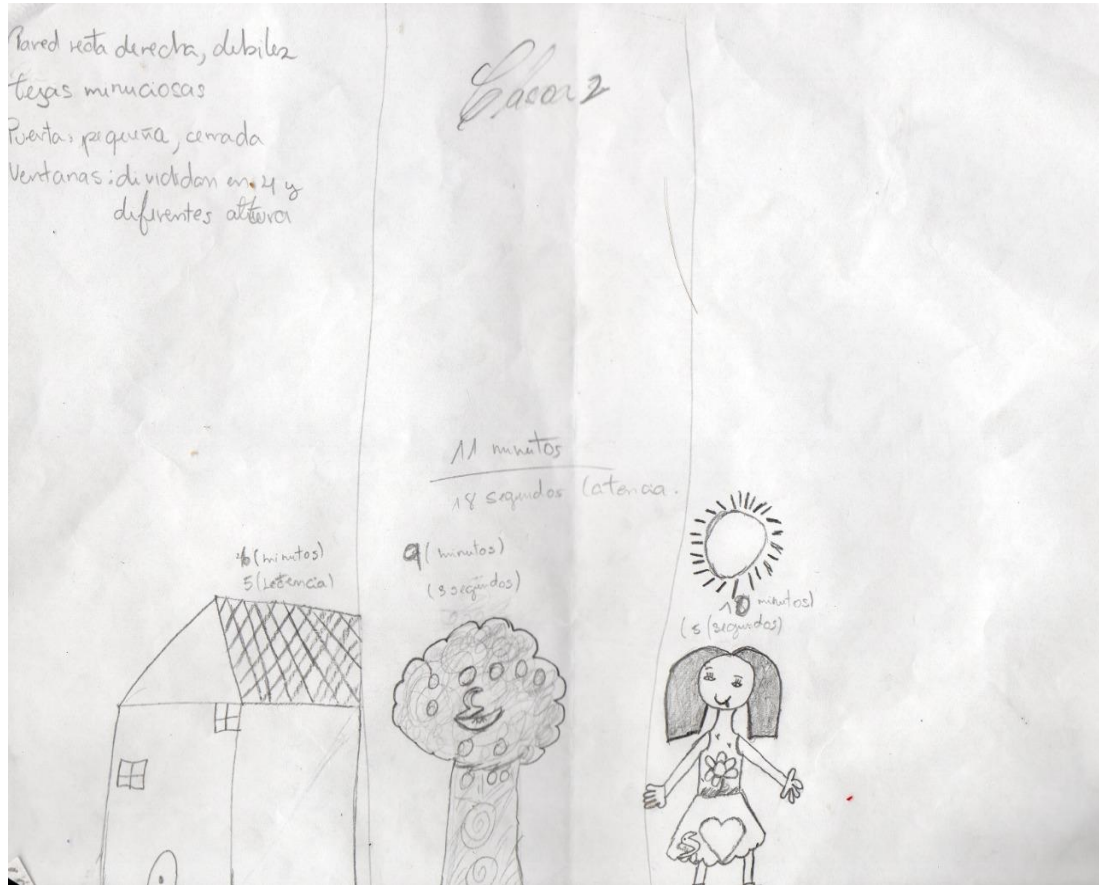 Pared recta derecha, debilez
tejas minuciosas
Puerta: pequeña, cerrada
Ventanas: dividan en 4 y
diferentes altura
2
11 minutos
18 segundos latencia.
6 (minutos)
5 (latencia)
9 (minutos)
(3 segundos)
10 minutos)
(5 (segundos)